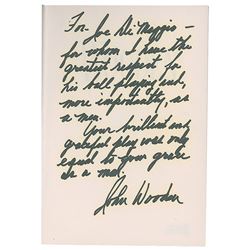 For Joe Di Maggio –
for whom I have the
greatest respect for
his ball playing and,
more importantly, as
a man.
Your brilliant and
graceful play was only
equal to your grace
as a man.
John Wooden